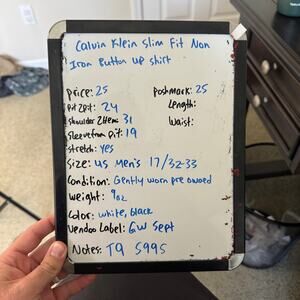 Calvin Klein Slim Fit Non
Iron Button Up Shirt
Price: 25 Poshmark: 25
Pit 2 pit: 24 Length:
Shoulder 2 Hem: 31 Waist:
Sleeve from pit: 19
Stretch: yes
Size: US Men's 17/32-33
Condition: Gently worn pre owned
Weight: 9oz
Color: white, black
Vendoo Label: GW Sept
Notes: T9 5995